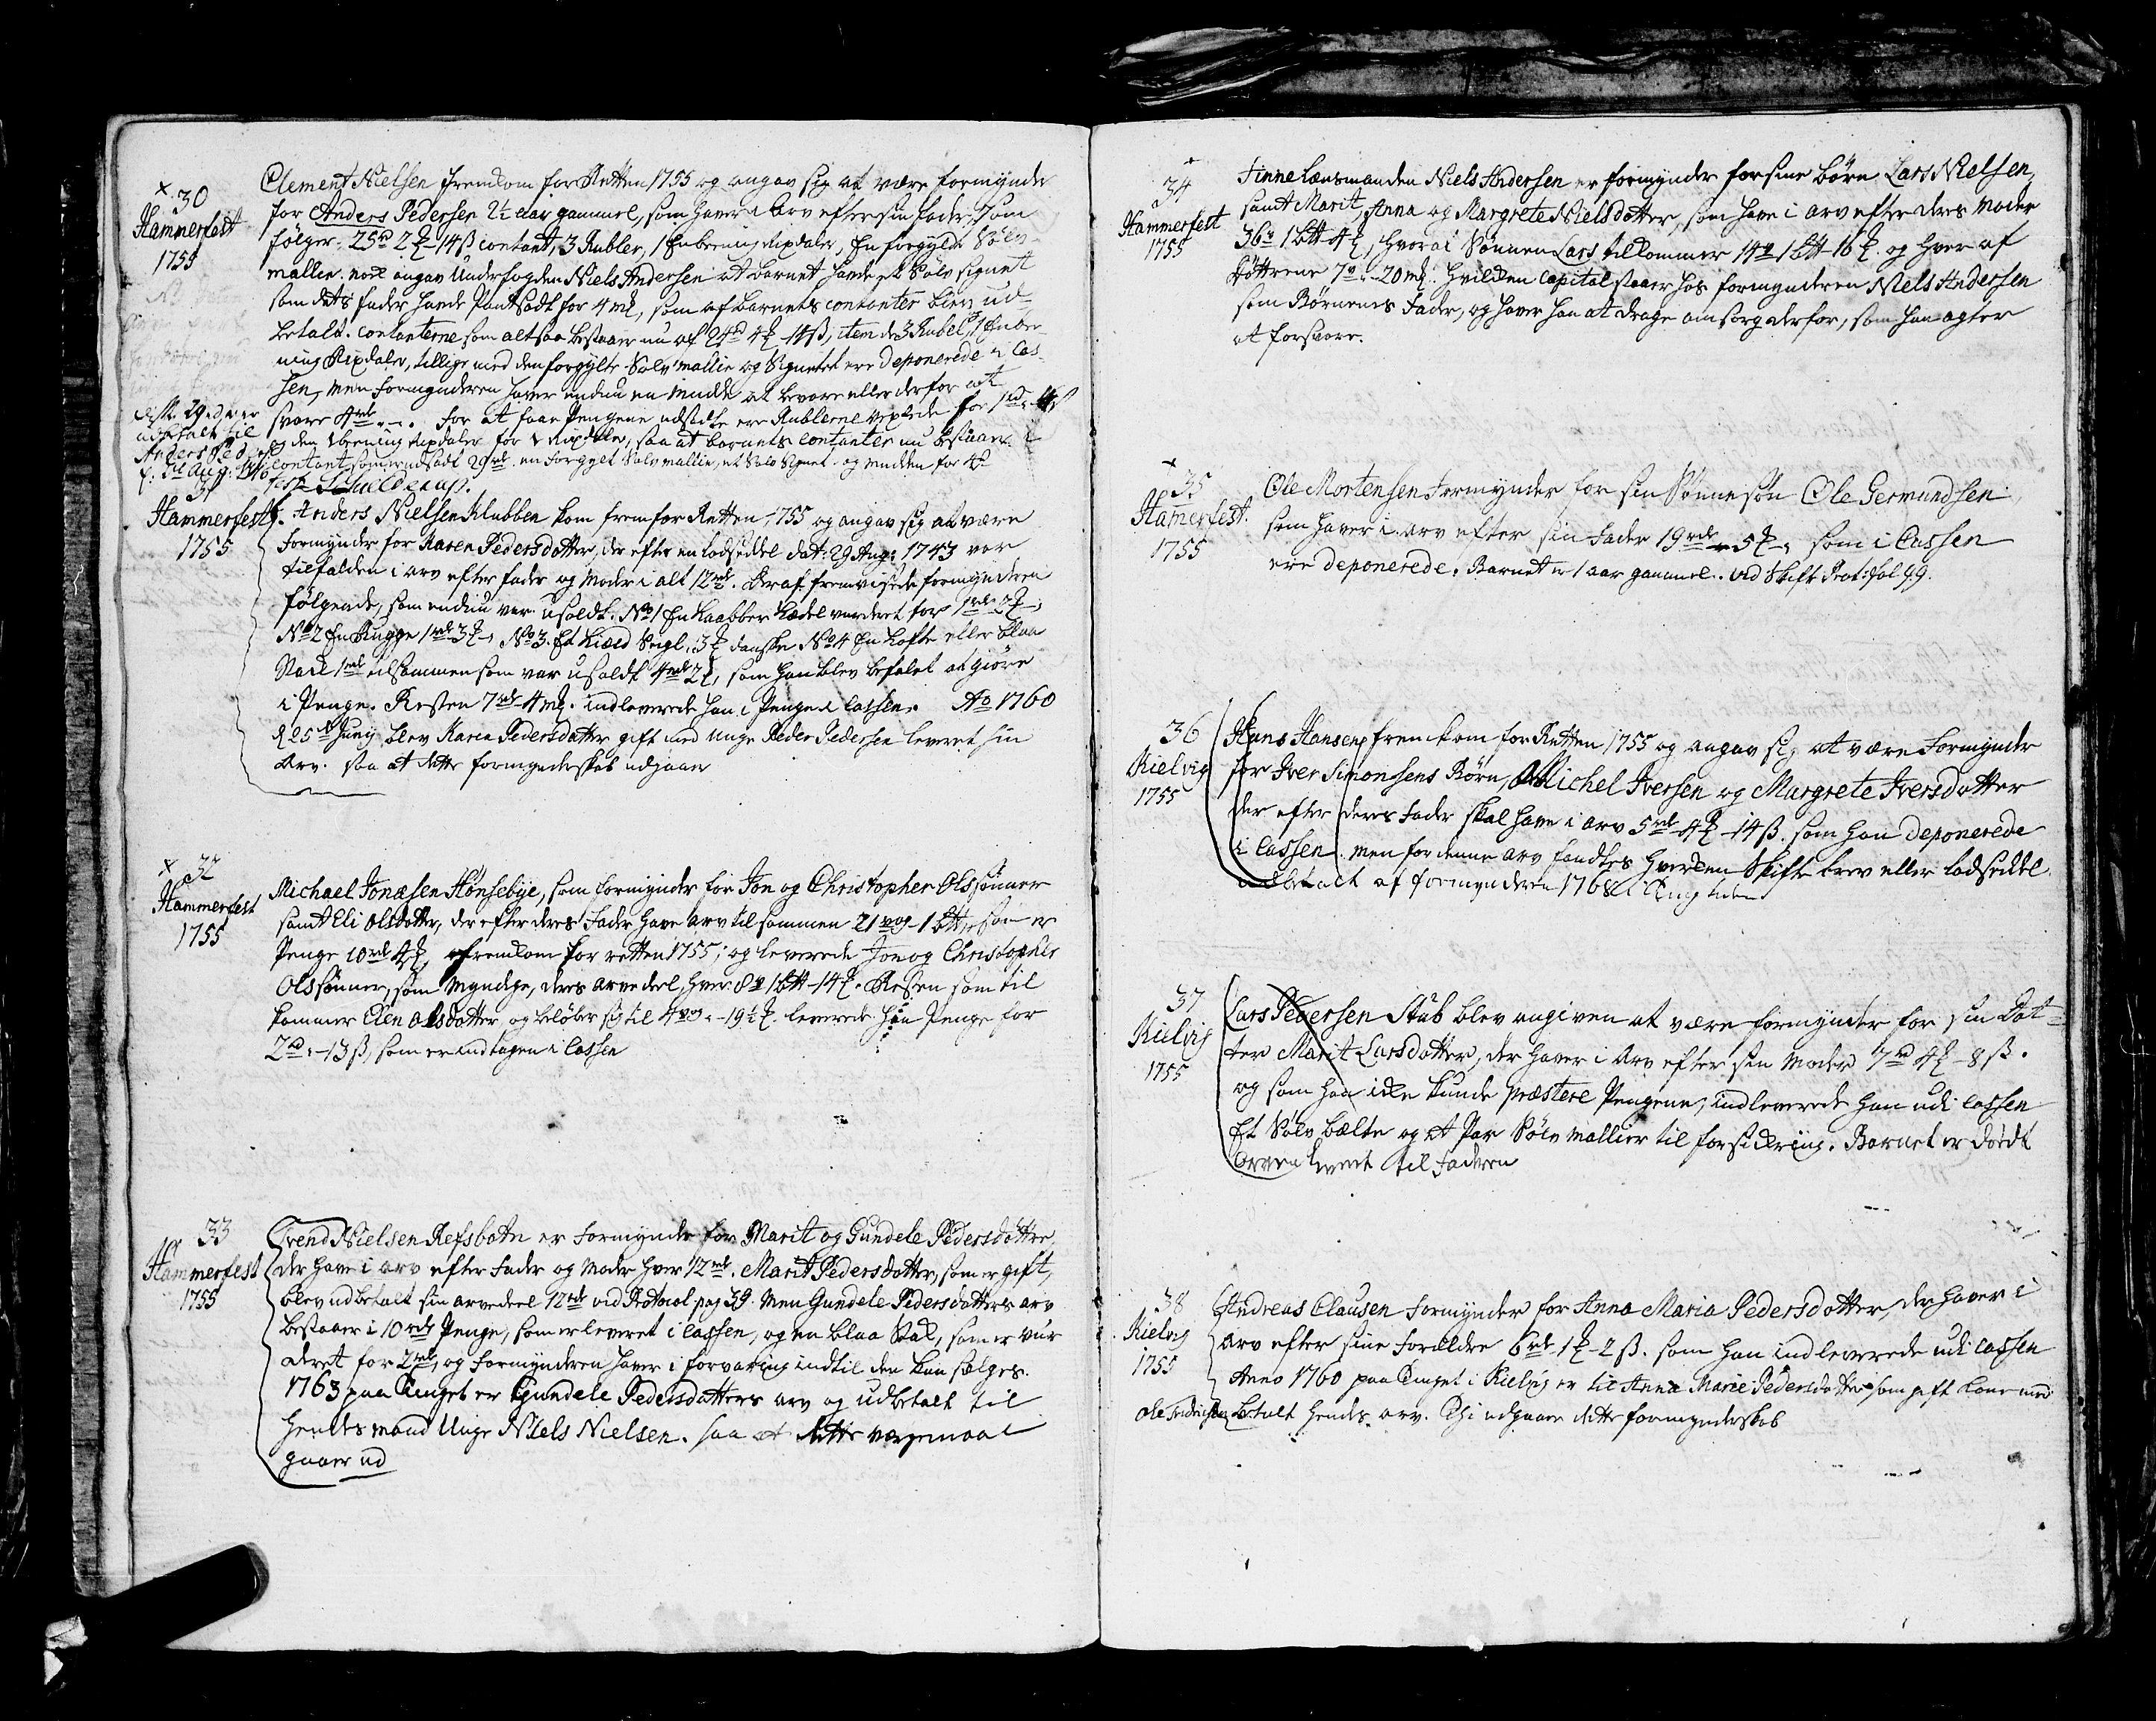 × 30
Hammerfest
1755
Clement Nielsen fremkom for Retten 1755 og angav sig at være formynder
for Anders Pedersen 2½ aar gammel, som haver i Arv efter sin fader som
følger: 25rd 2 14ß contant, 3 Rubler, 1 Enkening Rixdaler, En forgyldt Sølv
mallie. nok angav Underfogden Niels Andersen at barnet havde et Sølv signet
som dets fader havde Pantsadt for 4 mk, som af barnets contanter blev ud-
betalt. contanterne som altsaa bestaaer nu af 24rd 4 14ß, item de 3 Rubel, 1 Enke
ning Rixdaler, tillige med den forgylte Sølv mallie og Signetet ere deponerede i Cas-
sen, men formynderen haver endnu en Mudd at bevare eller derfor at
svare 4rd. for at faae Pengene udsadte ere Rublerne vexlede for
og den Rixdaler for 1 Rixdaler, saa at barnets contanter nu bestaaer i
contant som er udsadt 29rd en forgylt Sølv mallie, et Sølv Signet og mudden for
test Schielderup.
disse 29rd er
udbetalt til
Anders Peders:
31
Hammerfest
1755
Anders Nielsen Klubben kom frem for Retten 1755 og angav sig at være
Formynder for Karen Pedersdatter, der efter en lodseddel dat: 29 Aug: 1743 var
tilfalden i arv efter fader og Moder i alt 12rd. Heraf fremviste formynderen
følgende, som endnu var usoldt. No 1 En Kaabber Kædel vurderet for 1rd 2
No 2 En Rugge 1rd 3, No 3. Et Seigl. 3 danske No 4 En Kofte eller blaa
Stak 1rd tilsammen som var usoldt 4rd 2, som han blev befalet at giöre
i Penge. Resten 7rd 4 mk. indleverede han i Penge i Cassen. Ao 1760
d 25 Junij blev Karen Pedersdatter gift med unge Peder Pedersen leveret sin
Arv. saa at dette formynderskab udgaaer
× 32
Hammerfest
1755
Michael Jonæsen Hönsebye, som formynder for Jon og Christopher Olssönner
samt Eli Olsdatter, der efter deres Fader have arv til sammen 21 vog 1 btt som er
Penge 10rd 4, fremkom for retten 1755; og leverede Jon og Christopher
Olssönner, som myndige, deres arvedeel, hver 8 v 1 btt 14. Resten som til
kommer Elen Olsdatter og beløber sig til 4 vog - 19½ leverede han Penge for
2rd - 13ß, som er indtagen i Cassen
33
Hammerfest
1755
Svend Nielsen Refsbotn er Formynder for Marit og Gundele Pedersdöttre,
der have i arv efter Fader og Moder hver 12rd. Marit Pedersdotter, som er gift,
blev udbetalt sin arvedeel 12rd vid Protocol pag 39. Men Gundele Pedersdotters arv
bestaaer i 10rd Penge, som er leveret i Cassen, og en blaa Stak, som er vur
deret for 2rd, og Formynderen haver i forvaring indtil den kan sælges.
1763 paa Tinget er Gundele Pedersdotters arv og udbetalt til
hendes mand Unge Niels Nielsen. saa at dette værgemaal
gaaer ud
34
Hammerfest
1755
Finne Lænsmanden Niels Andersen er formynder for sine børn Lars Nielsen,
samt Marit, Anna og Margrete Nielsdotter, som have i arv efter deres Moder
36 v 1 btt 4, hvoraf Sönnen Lars tilkommer 14 v 1 btt 16. og hver af
Döttrene 7 v - 20 mk. hvilken Capital staaer hos formynderen Niels Andersen
som Børnenes Fader, og haver han at drage omsorg derfor, som han agter
at forsvare.
× 35
Hamerfest.
1755
Ole Mortensen Formynder for sin Sønnesön Ole Germundsen
som haver i arv efter sin Fader 19rd 5 som i Cassen
ere deponerede. Barnet er 1 aar gammel. vid Skift: Prot: fol 99.
36
Kielvig
1755
Hans Hansen fremkom for Retten 1755 og angav sig at være Formynder
for Iver Simonsens Børn, Michel Iversen og Margrete Iversdotter
der efter deres Fader skal have i arv 5rd 4 14ß. som han deponerede
i Cassen. men for denne arv fandtes hverken Skifte brev eller lodseddel.
udbetalt af formynderen 1768
37
Kielvig
1755
Lars Pedersen Stub blev angiven at være formynder for sin Dot-
ter Marit Larsdotter, der haver i Arv efter sin Moder 7rd 4 8ß.
og som han ikke kunde præstere Pengene, indleverede han udi Cassen
Et Sølv bælte og et Par Sølv mallier til forsikring. Barnet er dödt
Arven levert til Faderen
38
Kielvig
1755
Andreas Clausen Formynder for Anna Maria Pedersdotter, der haver i
arv efter sine Forældre 6rd 1 2ß. som han indleverede udi Cassen
Anno 1760 paa Tinget i Kielvig er til Anna Marie Pedersdotter som gift Kone med
Ole Fredrichsen betalt hendes arv. Thi udgaaer dette formynderskab